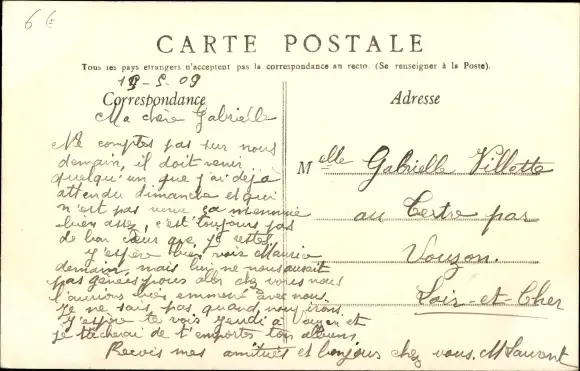 6 €
CARTE POSTALE
Tous les pays etrangers n'acceptent pas la correspondance au recto. (Se renseigner à la Poste).
18-5-09
Correspondance
Adresse
Ma chère Gabrielle
Ne comptes pas sur nous
demain, il doit venir
quelqu'un que j'ai déjà
attendu dimanche et qui
n'est pas venu ça m'ennuie
bien assez, c'est toujours pas
de bon cœur que je reste,
j'espère bien voir Maurice
demain, mais lui ne nous aurait
pas génés pour aller chez vous nous
l'aurions bien emmené avec nous.
Je ne sais pas quand nous irons.
J'espère te voir jeudi à et
je tâcherai de t'emporter ton album.
Reçois mes amitiés et bonjours chez vous. M Laurent
Melle Gabrielle Villette
au Tertre par
Vouzon.
Loir-et-Cher